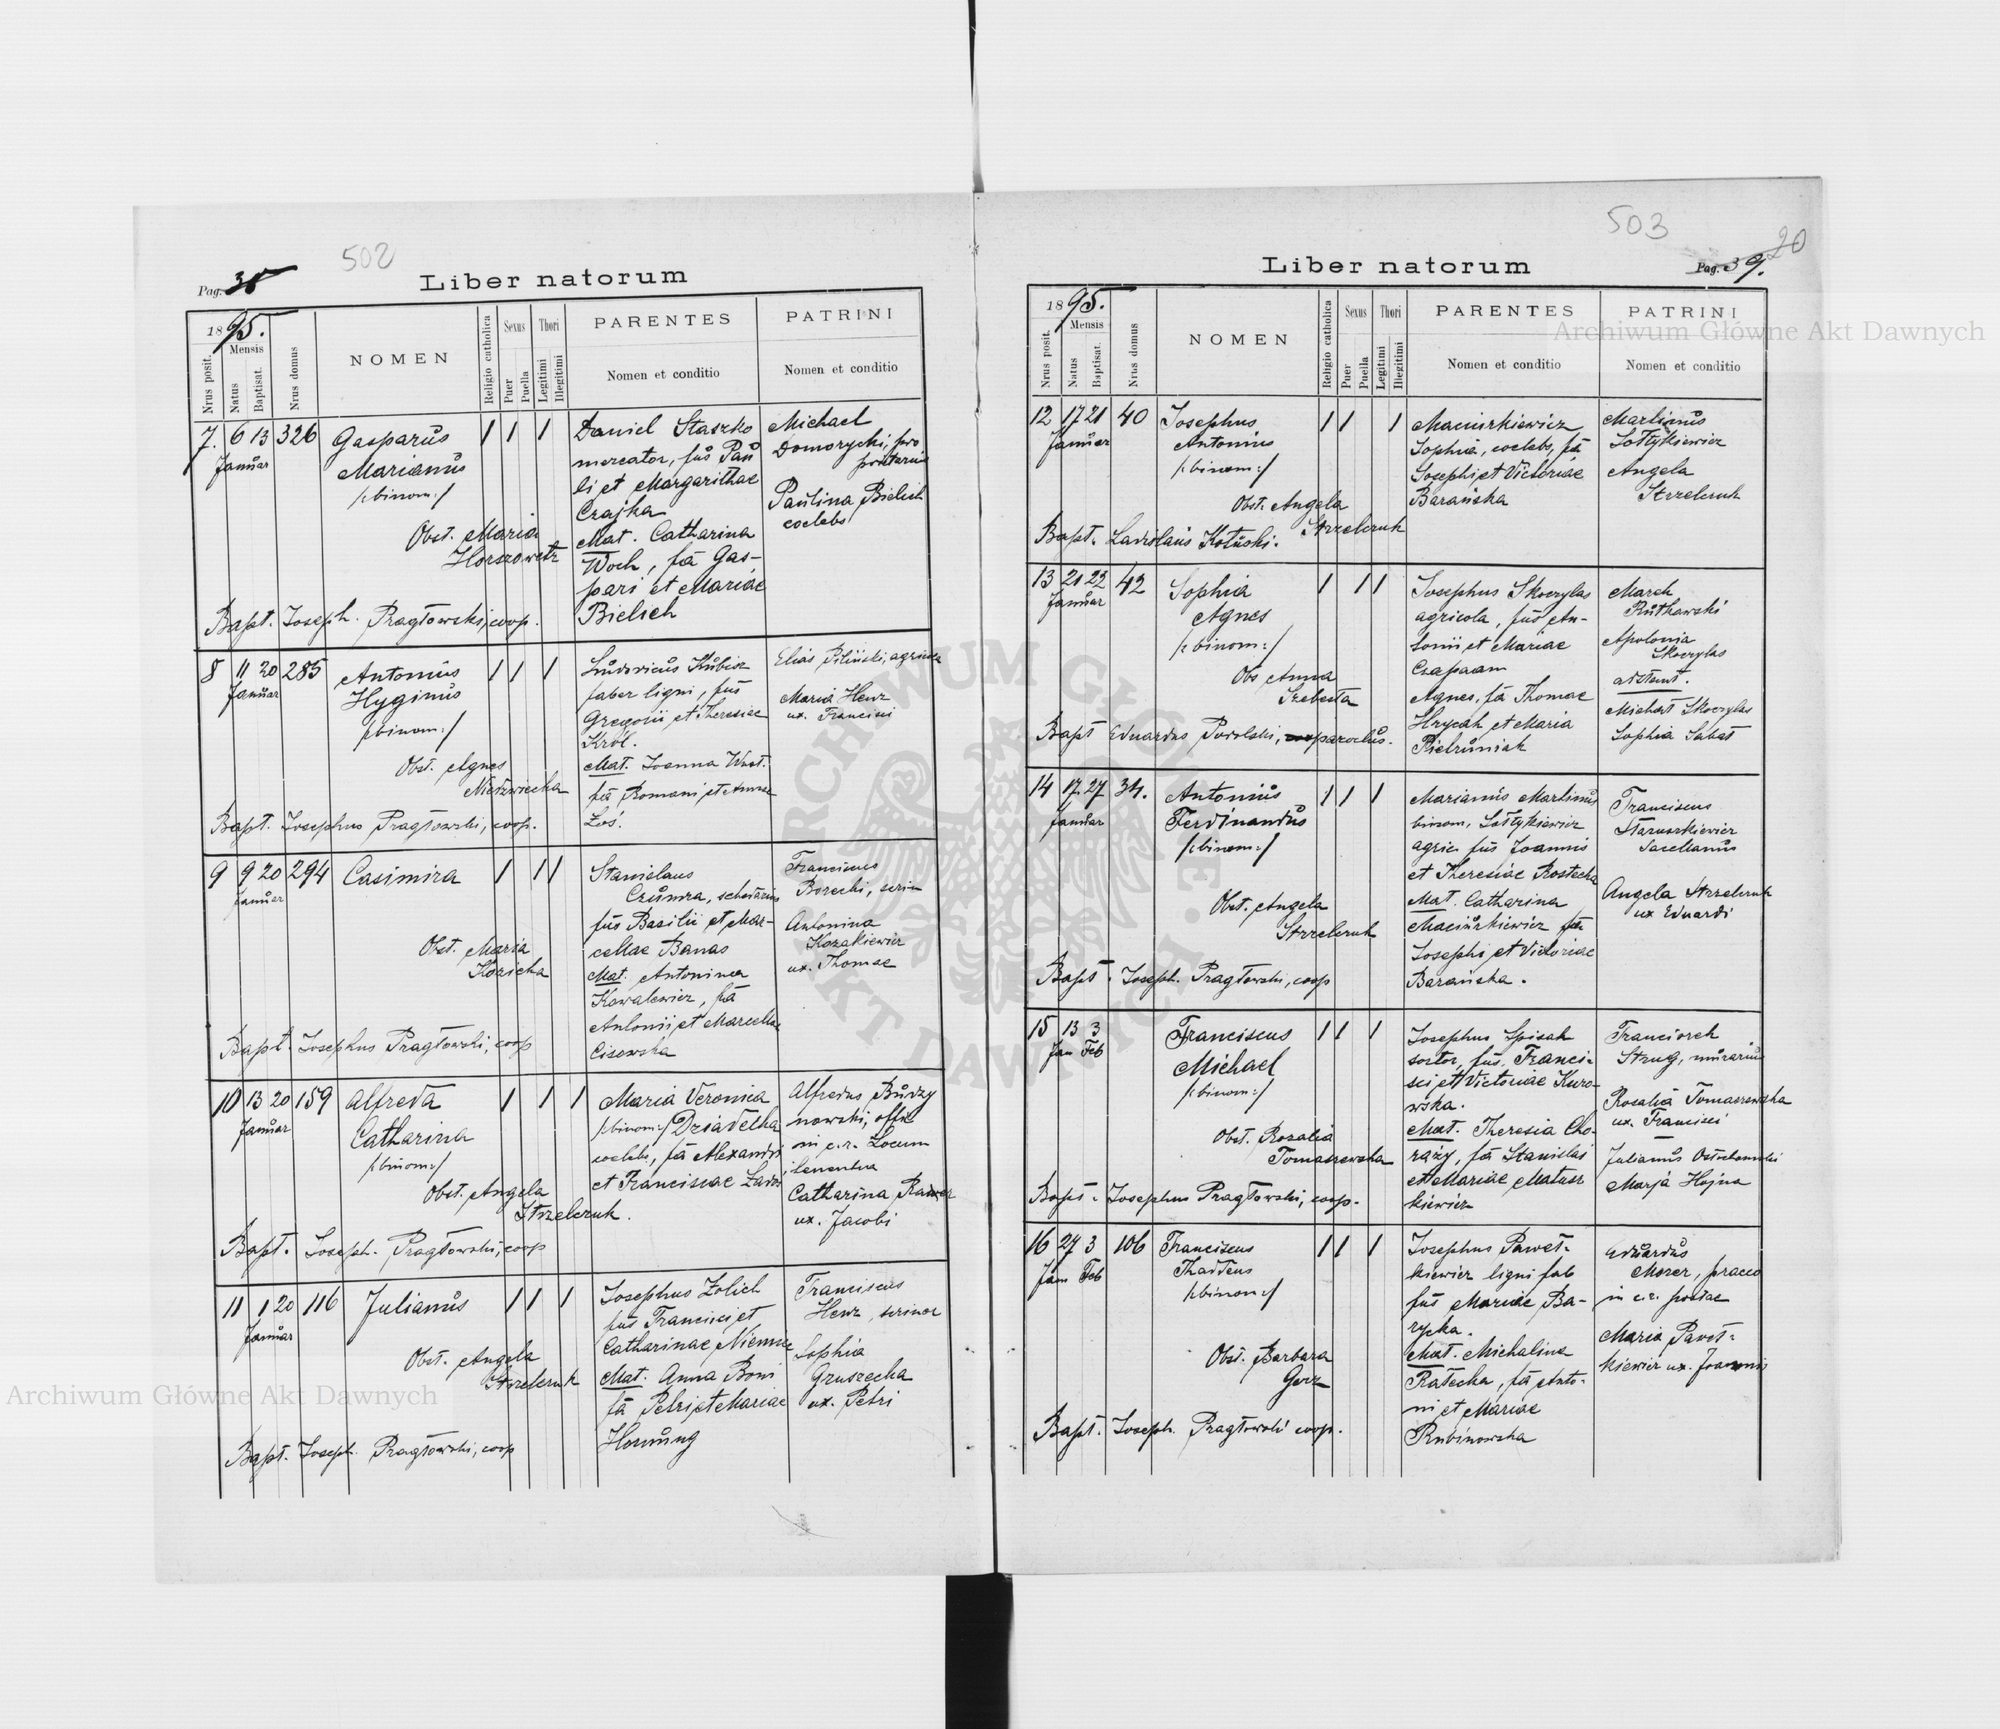 502
Pag. 38
Liber natorum
1895.
Nrus posit.
Mensis
Natus
Baptisat.
Nrus domus
NOMEN
Religio catholica
Sexus
Puer
Puella
Thori
Legitimi
Illegitimi
PARENTES
Nomen et conditio
PATRINI
Nomen et conditio
7. 6 13 326
Januar
Gasparus
Marianus
/:binom:/
Obst. Maria
Horszowetz
Bapt. Joseph. Pragłowski, coop.
Daniel Staszko
mercator, fus Pau
li et Margarithae
Czajka
Mat. Catharina
Woch, fa Gas-
pari et Mariae
Bielich
Michael
Domorycki, pro
prietarius
Paulina Bielich
coelebs
8 11 20 285
Januar
Antonius
Hyginus
/:binom:/
Obst. Agnes
Niedzwiecka
Bapt. Josephus Pragłowski, coop.
Ludovicus Kubisz
faber ligni, fus
Gregorii et Theresiae
Król.
Mat. Joanna
fa Romani et Annae
Łoś.
Elias Piliński, agricola
Maria Herz
ux. Francisci
9 9 20 294
Januar
Casimira
Obst. Maria
Kozicka
Bapt. Josephus Pragłowski, coop
Stanislaus
fus Basilii et Mar-
cellae Banas
Mat. Antonina
Kowalewicz, fa
Antonii et Marcellae
Cisowska
Franciscus
Borecki,
Antonina
Kozakiewicz
ux. Thomae
10 13 20 159
Januar
Alfreda
Catharina
/:binom:/
Obst. Angela
Strzelczuk.
Bapt. Joseph. Pragłowski, coop
Maria Veronica
/:binom:/ Dziadecka
coelebs, fa Alexandri
et Franciscae
Alfredus Budzy
nowski, offic
in c.r. Locum
tenentia
Catharina
ux. Jacobi
11 1 20 116
Januar
Julianus
Obst. Angela
Strzelczuk
Bapt. Joseph. Pragłowski, coop
Josephus Zolich
fus Francisci et
Catharinae Niemiec
Mat. Anna Boni
fa Petri et Mariae
Hornung
Franciscus
Herz,
Sophia
Gruszecka
ux. Petri
503
20
Liber natorum
Pag. 39.
1895.
Nrus posit.
Mensis
Natus
Baptisat.
Nrus domus
NOMEN
Religio catholica
Sexus
Puer
Puella
Thori
Legitimi
Illegitimi
PARENTES
Nomen et conditio
PATRINI
Nomen et conditio
12 17 21 40
Januar
Josephus
Antonius
/:binom:/
Obst. Angela
Strzelczuk
Bapt. Ladislaus Kotuski.
Maciurkiewicz
Sophia, coelebs, fa
Josephi et Victoriae
Barańska
Martinus
Sołtykiewicz
Angela
Strzelczuk
13 21 22 42
Januar
Sophia
Agnes
/:binom:/
Obs Anna
Szebesta
Bapt Eduardus Podolski, parochus.
Josephus Skoczylas
agricola, fus An-
tonii et Mariae
Agnes, fa Thomae
Hrycak et Maria
Pietruniak
Marek
Rutkawski
Apolonia
Skoczylas
adstant.
Michał Skoczylas
Sophia Sabat
14 17 27 34.
Januar
Antonius
Ferdinandus
/:binom:/
Obst. Angela
Strzelczuk
Bapt. Joseph. Pragłowski, coop
Marianus Martinus
binom, Sołtykiewicz
agric. fus Joannis
et Theresiae Rostecka
Mat. Catharina
Maciurkiewicz fa
Josephi et Victoriae
Barańska.
Franciscus
Staruszkiewicz
Angela Strzelczuk
ux Eduardi
15 13 3
Jan Feb
Franciscus
Michael
/:binom:/
Obst. Rozalia
Tomaszewska
Bapt. Josephus Pragłowski, coop.
Josephus Spisak
sartor, fus, Franci-
sci et Victoriae Kuro-
wska.
Mat. Theresia Cho-
rąży, fa Stanislai
et Mariae Matusz
kiewicz
Franciscek
Strug, murarius
Rosalia Tomaszewska
ux. Francisci
Julianus
Marja Hojna
16 27 3 106
Jan Feb
Franciscus
Thaddeus
/:binom:/
Obst. Barbara
Gerz
Bapt. Joseph. Pragłowski coop.
Josephus Paweł-
kiewicz ligni fab
fus Mariae Ba-
rycka.
Mat. Michalina
Rałecka, fa Anto-
ni et Mariae
Rubinowska
Eduardus
Morer, praeco
in c.r. postae
Maria Paweł-
kiewicz ux. Joannis
Archiwum Główne Akt Dawnych
Archiwum Główne Akt Dawnych
ARCHIWUM GŁÓWNE AKT DAWNYCH